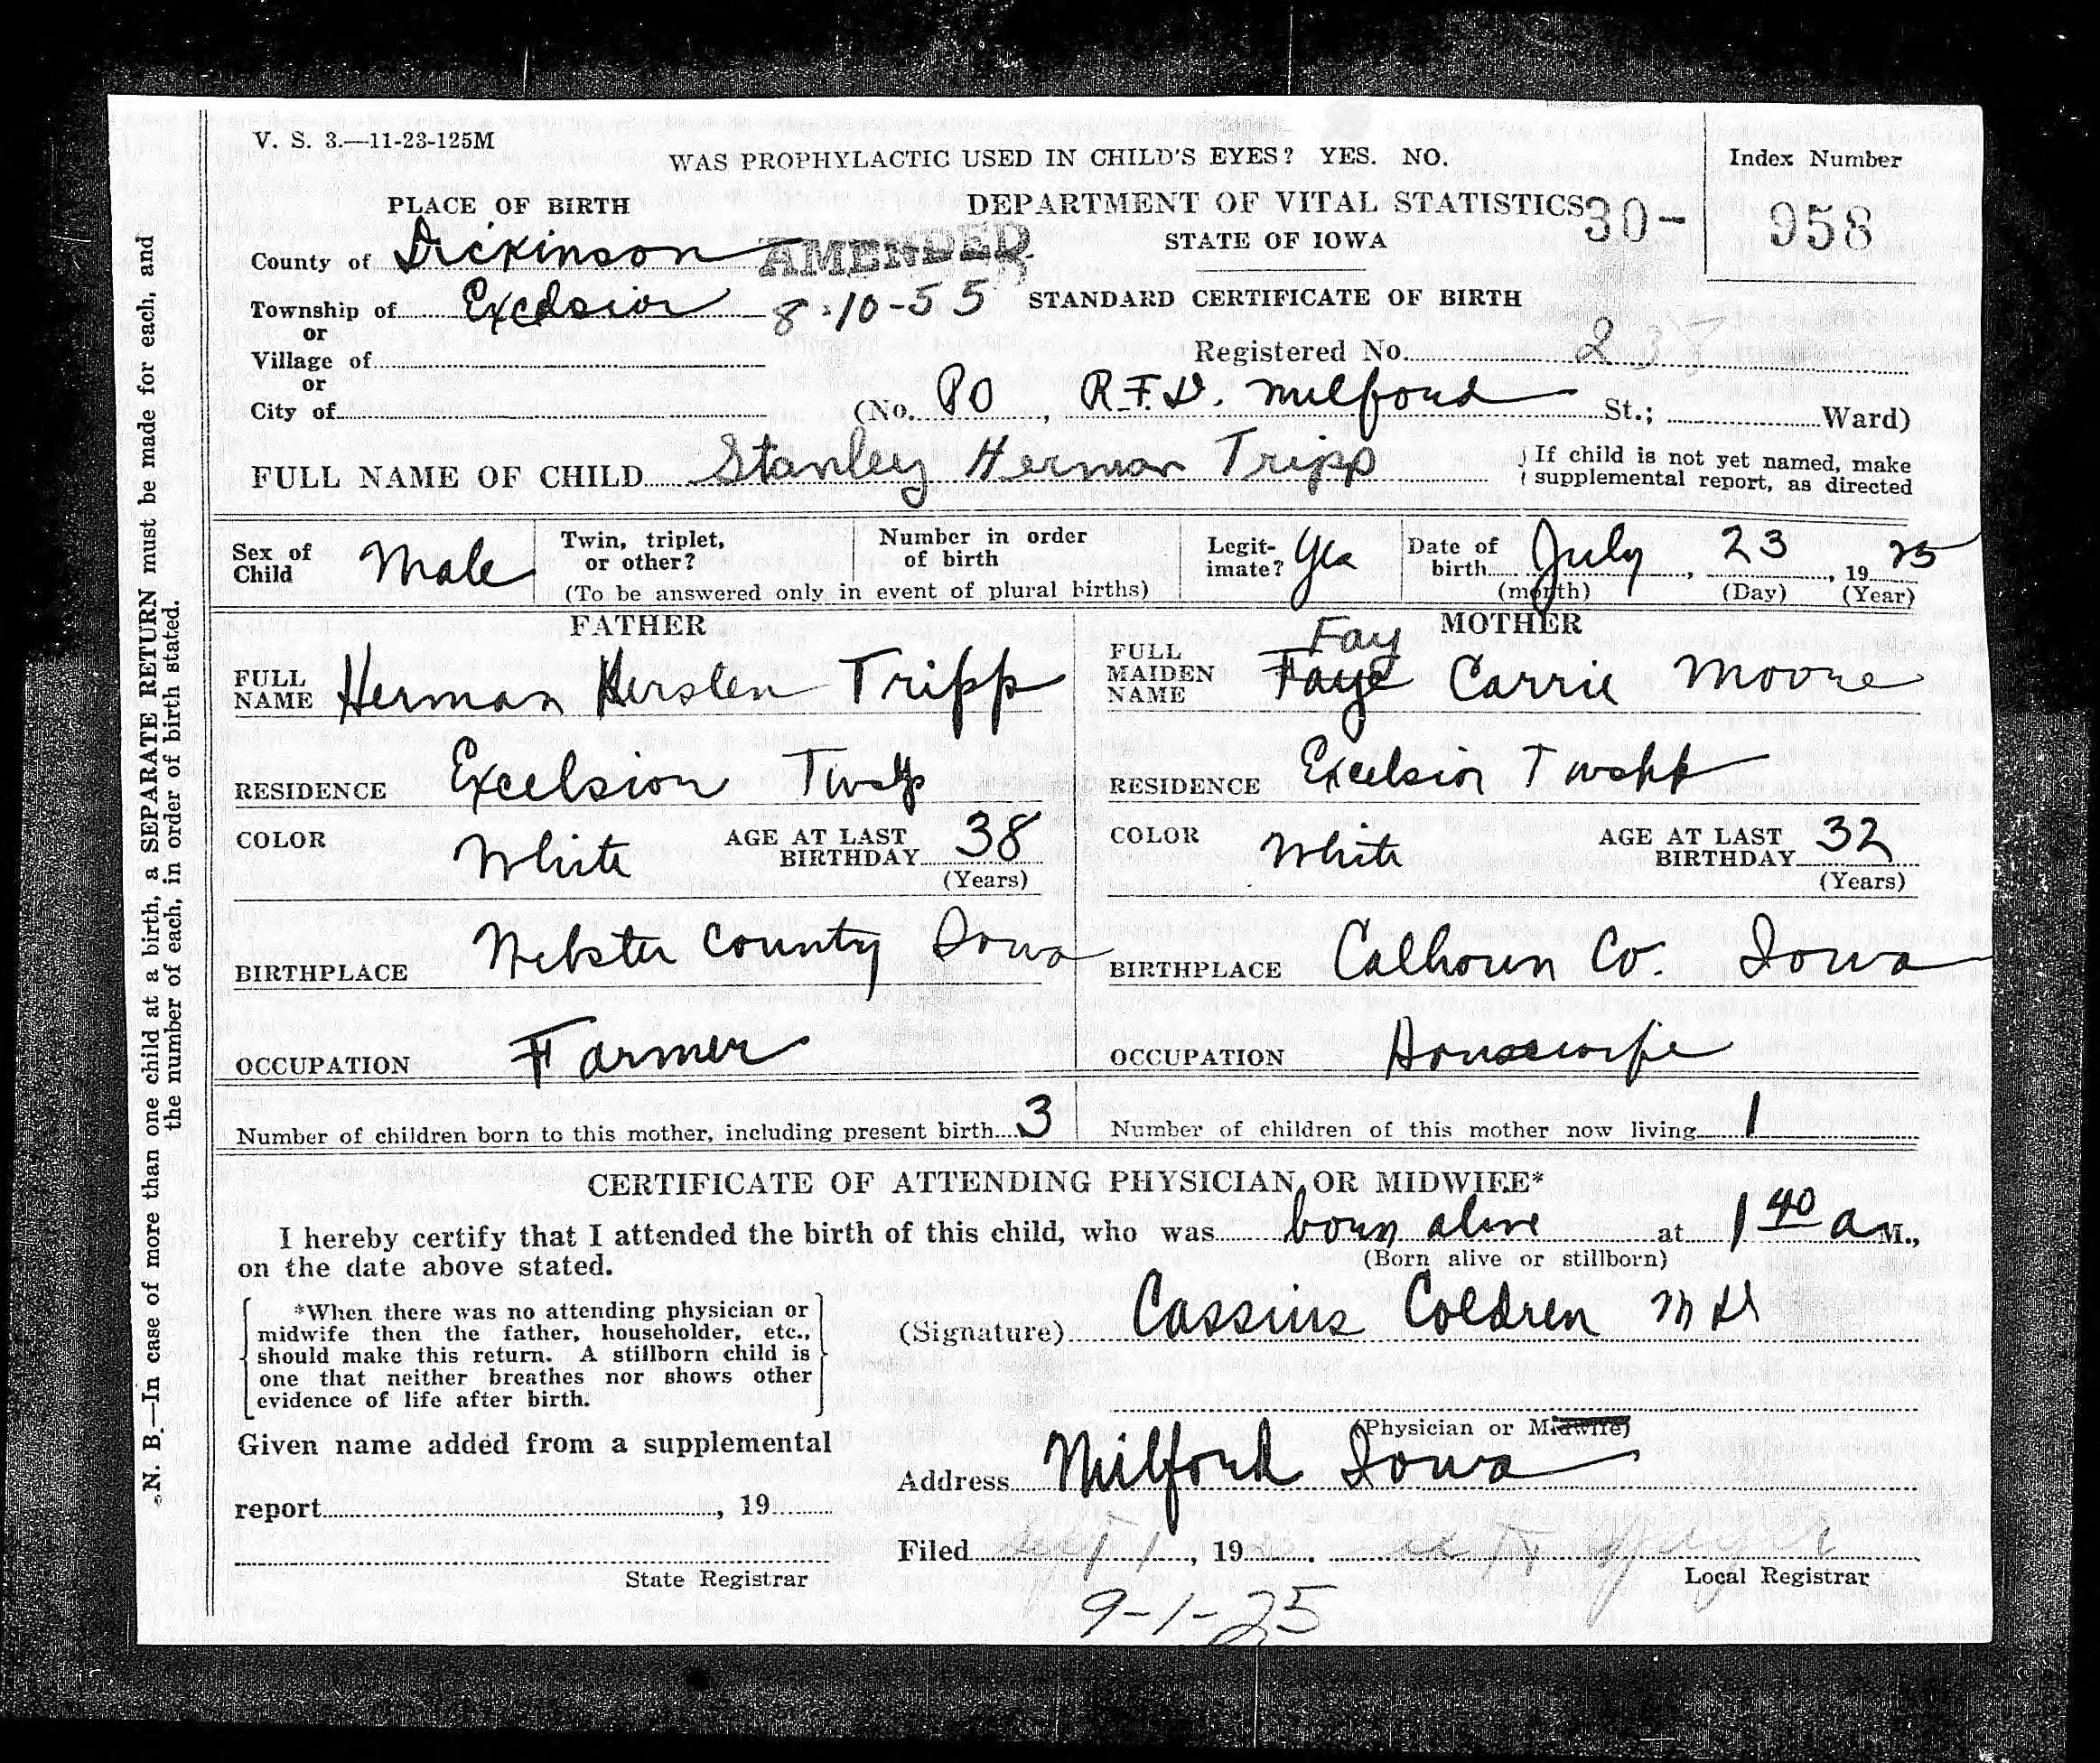 V. S. 3.—11-23-125M
WAS PROPHYLACTIC USED IN CHILD'S EYES? YES. NO.
Index Number
PLACE OF BIRTH
DEPARTMENT OF VITAL STATISTICS
30- 958
STATE OF IOWA
County of Dickinson
AMENDED
8-10-55
Township of Excelsior
STANDARD CERTIFICATE OF BIRTH
or
Village of
Registered No. 237
or
City of (No. PO, R.F.D. Milford St.; Ward)
FULL NAME OF CHILD Stanley Herman Tripp
If child is not yet named, make
supplemental report, as directed
Sex of Child Male
Twin, triplet, or other?
Number in order of birth
(To be answered only in event of plural births)
Legit- imate? Yes
Date of birth July, 23, 1925
(month) (Day) (Year)
FATHER
FULL NAME Herman Kersten Tripp
RESIDENCE Excelsior Twsp
COLOR White
AGE AT LAST BIRTHDAY 38
(Years)
BIRTHPLACE Webster County Iowa
OCCUPATION Farmer
MOTHER
Fay
FULL MAIDEN NAME Faye Carrie Moore
RESIDENCE Excelsior Twshp
COLOR White
AGE AT LAST BIRTHDAY 32
(Years)
BIRTHPLACE Calhoun Co. Iowa
OCCUPATION Housewife
Number of children born to this mother, including present birth 3
Number of children of this mother now living 1
CERTIFICATE OF ATTENDING PHYSICIAN OR MIDWIFE*
I hereby certify that I attended the birth of this child, who was born alive at 1 40 a M.,
(Born alive or stillborn)
on the date above stated.
*When there was no attending physician or
midwife then the father, householder, etc.,
should make this return. A stillborn child is
one that neither breathes nor shows other
evidence of life after birth.
(Signature) Cassius Coldren MD
(Physician or Midwife)
Given name added from a supplemental
report, 19
State Registrar
Address Milford Iowa
Filed, 19
Local Registrar
9-1-25
N. B.—In case of more than one child at a birth, a SEPARATE RETURN must be made for each, and
the number of each, in order of birth stated.